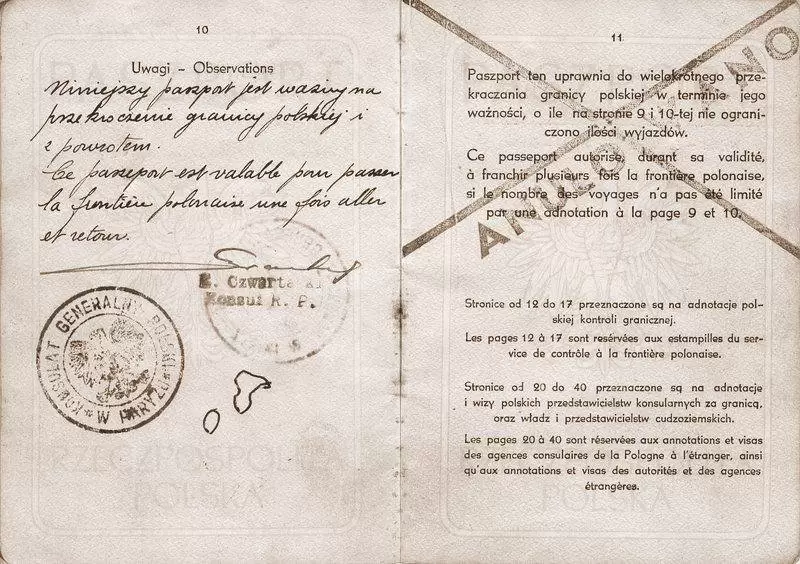 10
Uwagi – Observations
Niniejszy paszport jest ważny na
przekroczenie granicy polskiej i
z powrotem.
Ce passeport est valable pour passer
la frontière polonaise une fois aller
et retour.
Czwarta
Konsul R. P.
KONSULAT GENERALNY POLSKI
W PARYŻU
RZECZPOSPOLITA
POLSKA
11
Paszport ten uprawnia do wielokrotnego prze-
kraczania granicy polskiej w terminie jego
ważności, o ile na stronie 9 i 10-tej nie ograni-
czono ilości wyjazdów.
Ce passeport autorise, durant sa validité,
à franchir plusieurs fois la frontière polonaise,
si le nombre des voyages n'a pas été limité
par une adnotation à la page 9 et 10.
ANULOWANO
Stronice od 12 do 17 przeznaczone są na adnotacje pol-
skiej kontroli granicznej.
Les pages 12 à 17 sont resérvées aux estampilles du ser-
vice de contrôle à la frontière polonaise.
Stronice od 20 do 40 przeznaczone są na adnotacje
i wizy polskich przedstawicielstw konsularnych za granicą,
oraz władz i przedstawicielstw cudzoziemskich.
Les pages 20 à 40 sont réservées aux annotations et visas
des agences consulaires de la Pologne à l'étranger, ainsi
qu'aux annotations et visas des autorités et des agences
étrangères.
POLSKA